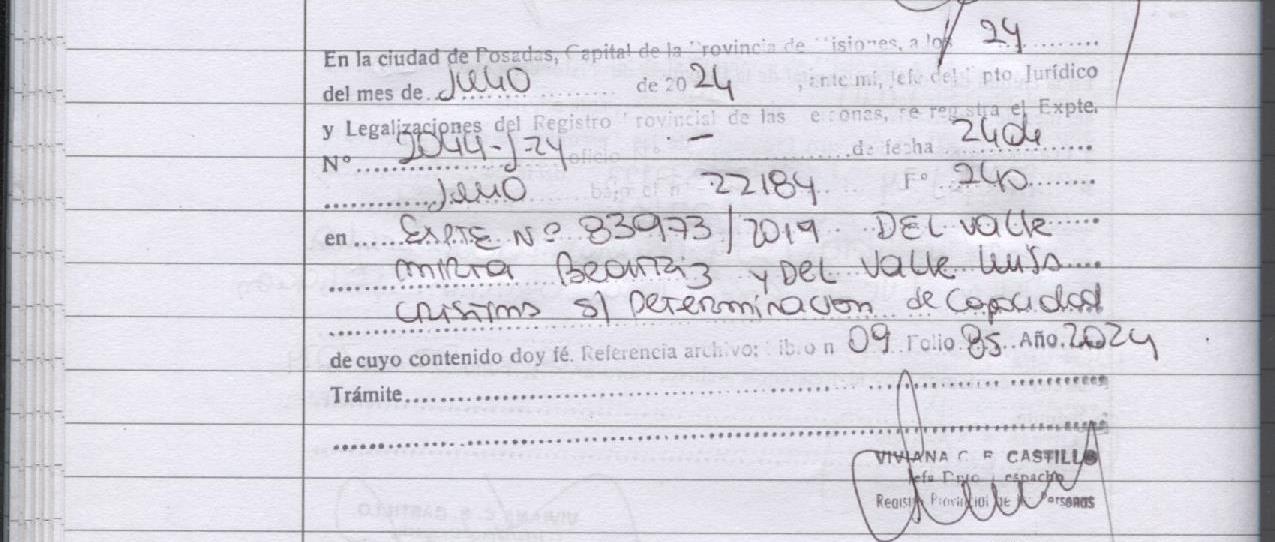 En la ciudad de Posadas, Capital de la Provincia de Misiones, a los 24
del mes de Julio de 2024, ante mi, Jefe del Dpto Jurídico
y Legalizaciones del Registro Provincial de las Personas, se registra el Expte.
Nº 2044-J-24 oficio Nº - de fecha 24 de
Julio bajo el nº 22184 Fº 240
en EXPTE Nº 83973/2019 DEL VALLE
Beatriz y DEL VALLE Luis
s/ Determinacion de Capacidad
de cuyo contenido doy fé. Referencia archivo: Libro n 09 Folio 85 Año 2024
Trámite
VIVIANA C. CASTILLO
Jefa Dpto Despacho
Registro Provincial de las Personas